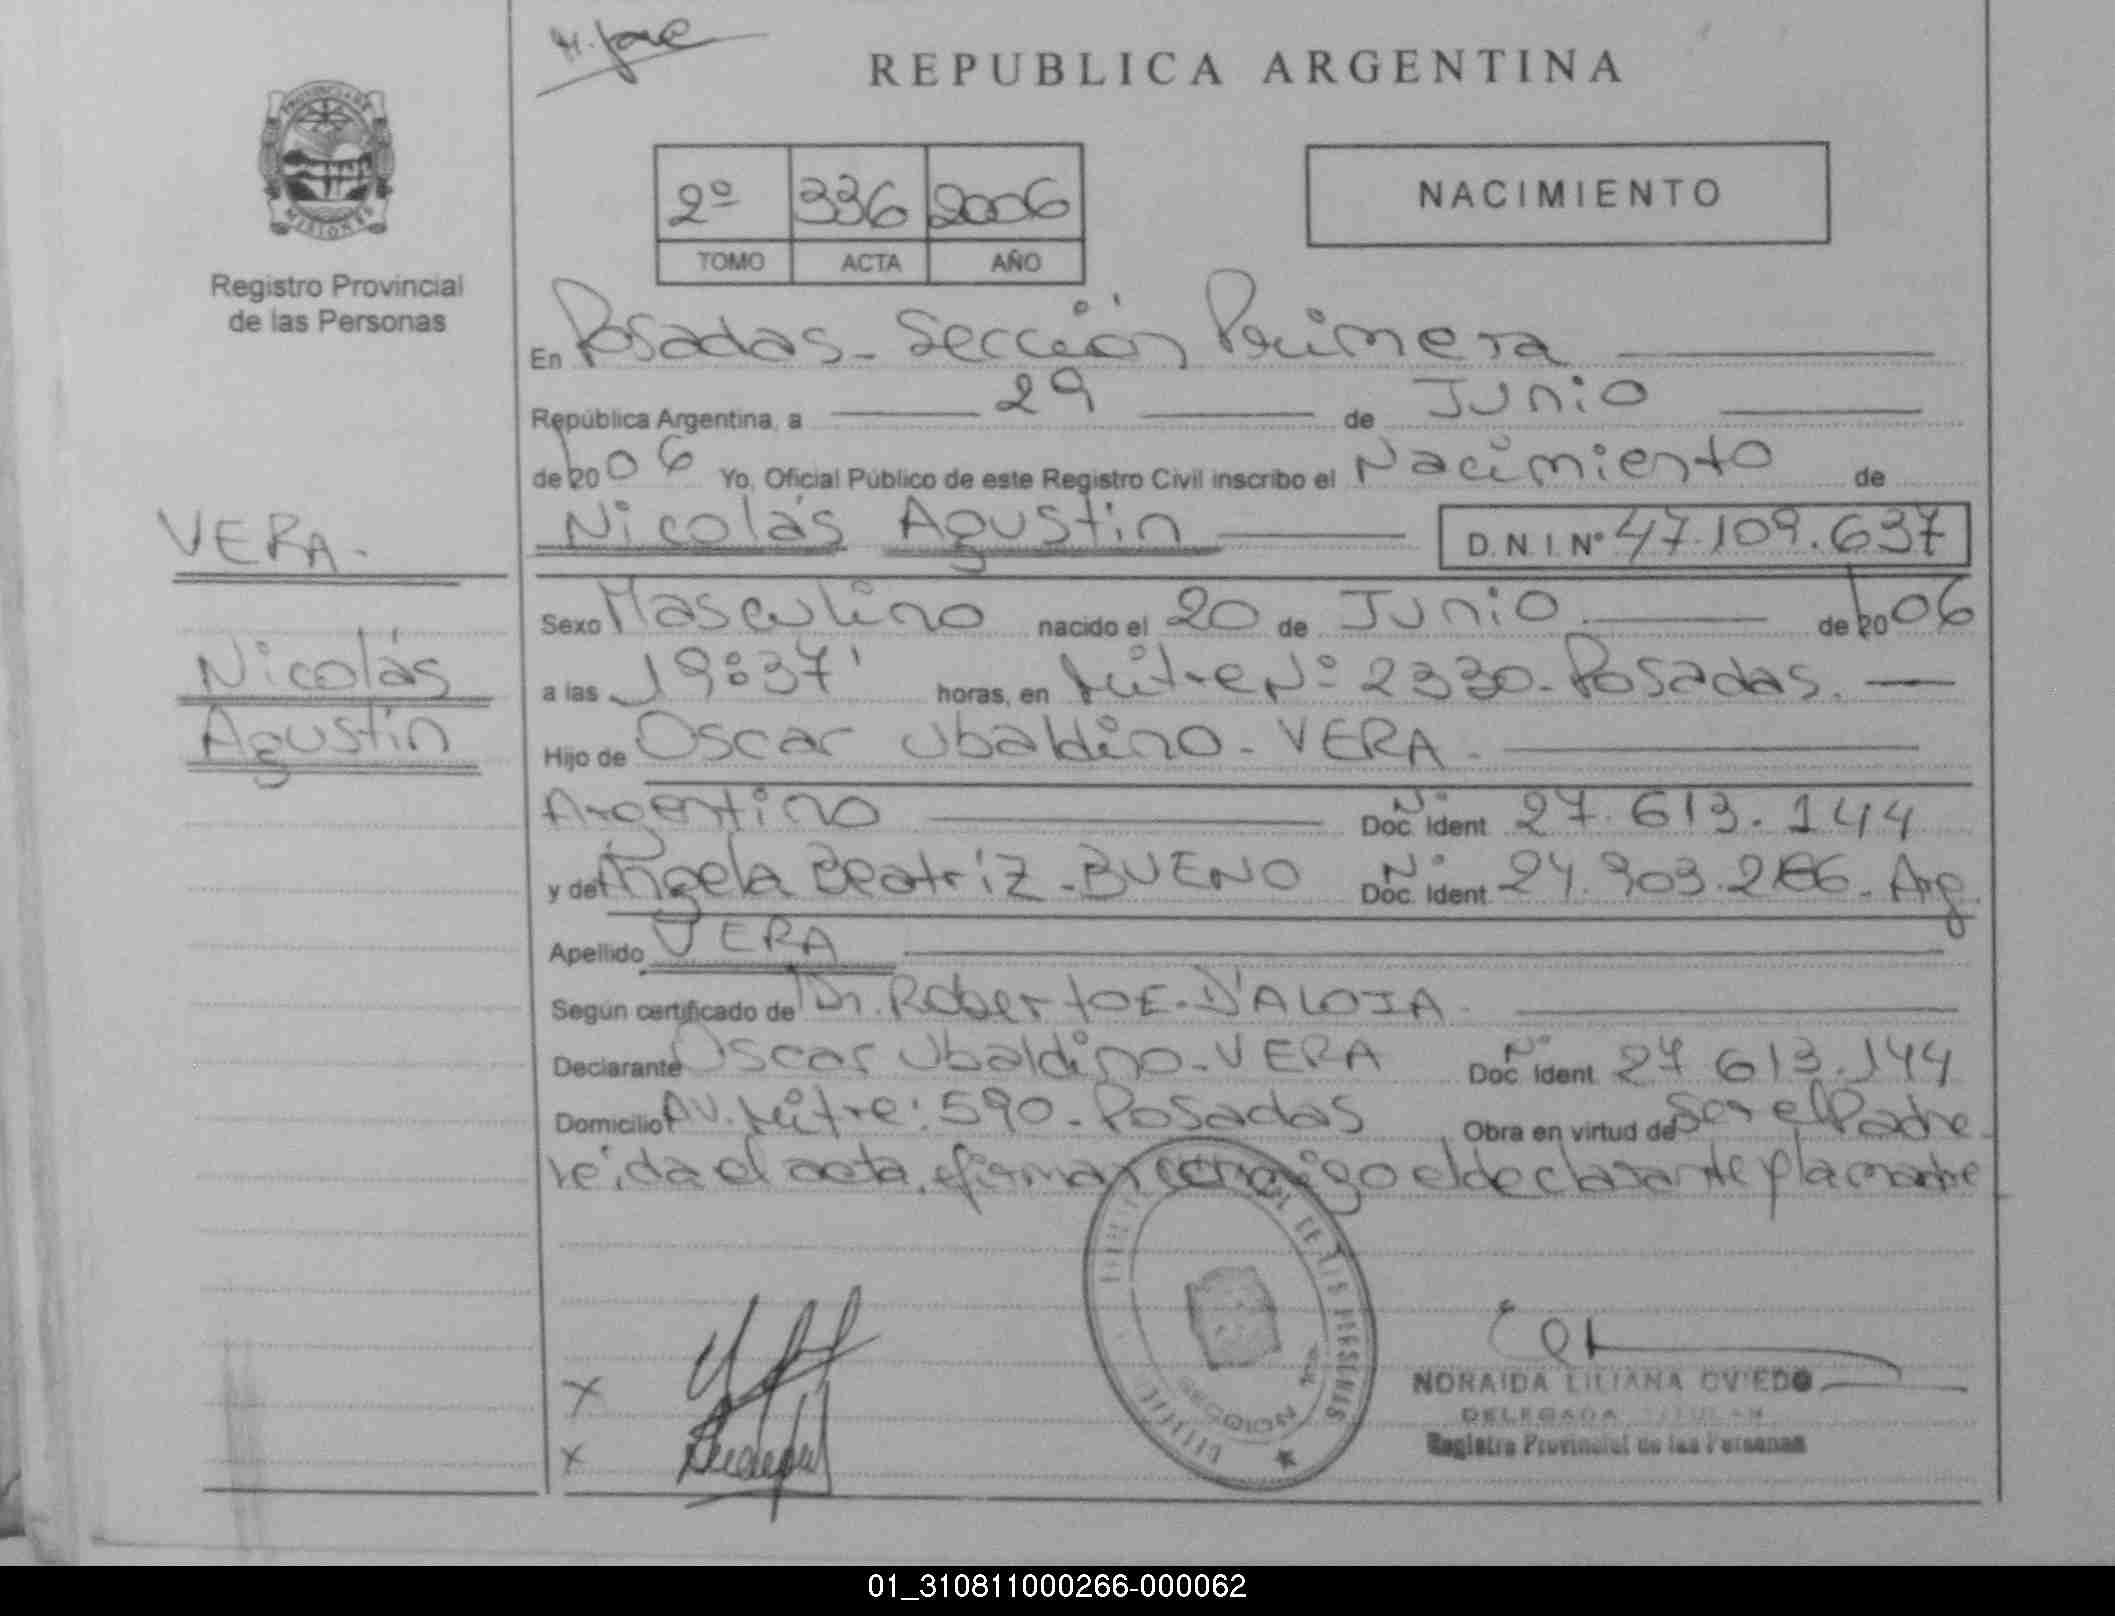 REPUBLICA ARGENTINA
PROVINCIA DE
MISIONES
Registro Provincial
de las Personas
2º 336 2006
TOMO ACTA AÑO
NACIMIENTO
En Posadas - Sección Primera
República Argentina, a 29 de Junio
de 2006 Yo, Oficial Público de este Registro Civil inscribo el Nacimiento de
Nicolás Agustín D.N.I. Nº 47.109.637
VERA.
Nicolás
Agustín
Sexo Masculino nacido el 20 de Junio de 2006
a las 19:37' horas, en Mitre Nº 2330 - Posadas.
Hijo de Oscar Ubaldino - VERA -
Argentino Nº Doc. Ident 27.613.144
y de Angela Beatriz - BUENO Nº Doc. Ident. 24.903. - Arg.
Apellido VERA
Según certificado de Dr. Roberto E. D'ALOJA -
Declarante Oscar Ubaldino - VERA Nº Doc. Ident. 27.613.144
Domicilio AV. Mitre: 590 - Posadas Obra en virtud de Ser el Padre.
leída el acta, firman conmigo el declarante y la madre
DE LAS PERSONAS
SECCION 1ra
NORAIDA LILIANA OVIEDO
DELEGADA TITULAR
Registro Provincial de las Personas
01_310811000266-000062